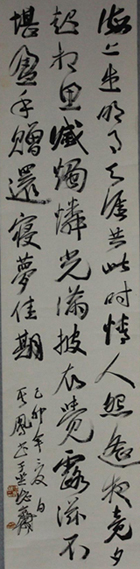 海上生明月天涯共此时情人怨遥夜竟夕
起相思灭烛怜光满披衣觉露滋不
堪盈手赠还寝梦佳期
己卯年夏月